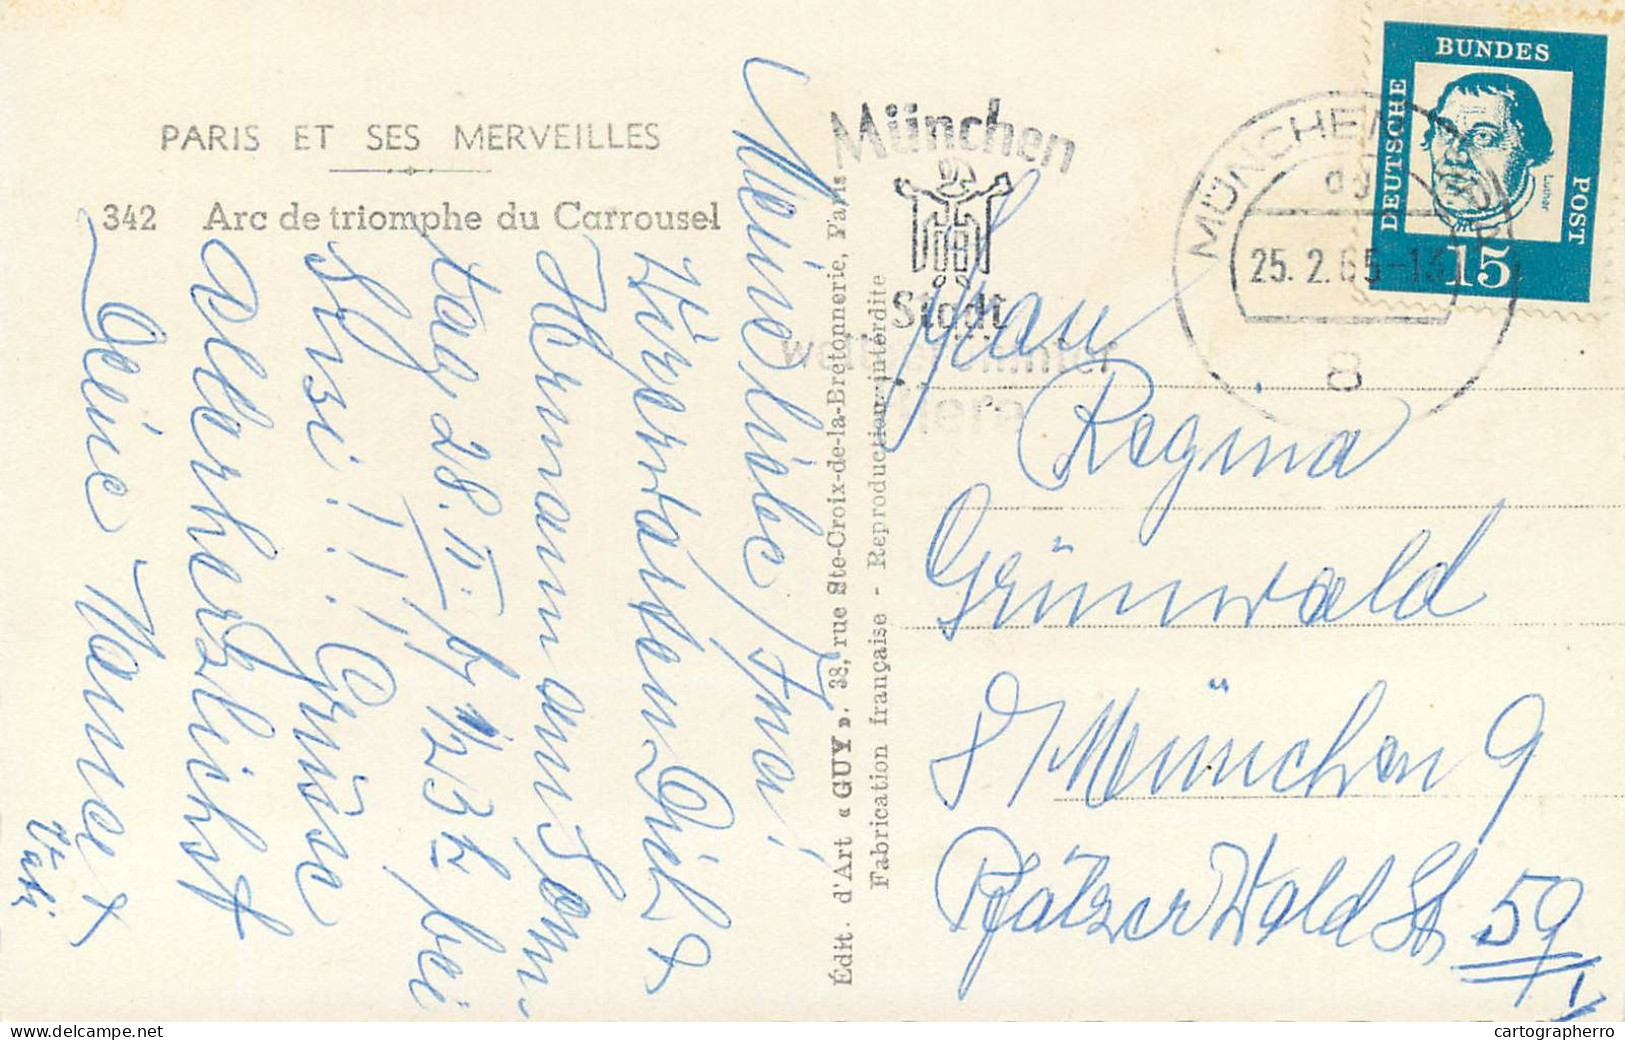 PARIS ET SES MERVEILLES
342 Arc de triomphe du Carrousel
Meine liebe Ina!
Wir erwarten Dich &
Hermann am Sonn-
tag 28. II. ½ 3h bei
Susi!!! Grüsse
allerherzlichst
Deine Nanne &
Édit. d'Art « GUY ». 38, rue Ste-Croix-de-la-Bretonnerie, Paris
Fabrication française - Reproduction interdite
München
Stadt
MÜNCHEN
25. 2. 65-13
8
DEUTSCHE
BUNDES
POST
Luther
15
Frau
Regina
Grünwald
8 München 9
Pfälzer Wald St 59/I
cartographerro